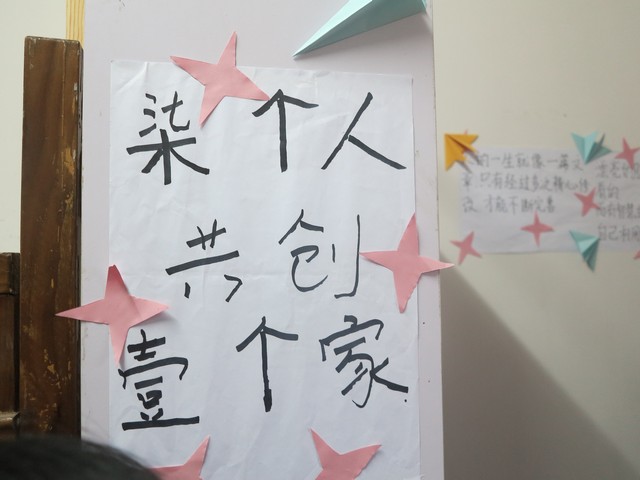 柒个人
共创
壹个家
的一生就像一篇文
章,只有经过多次精心修
改,才能不断完善